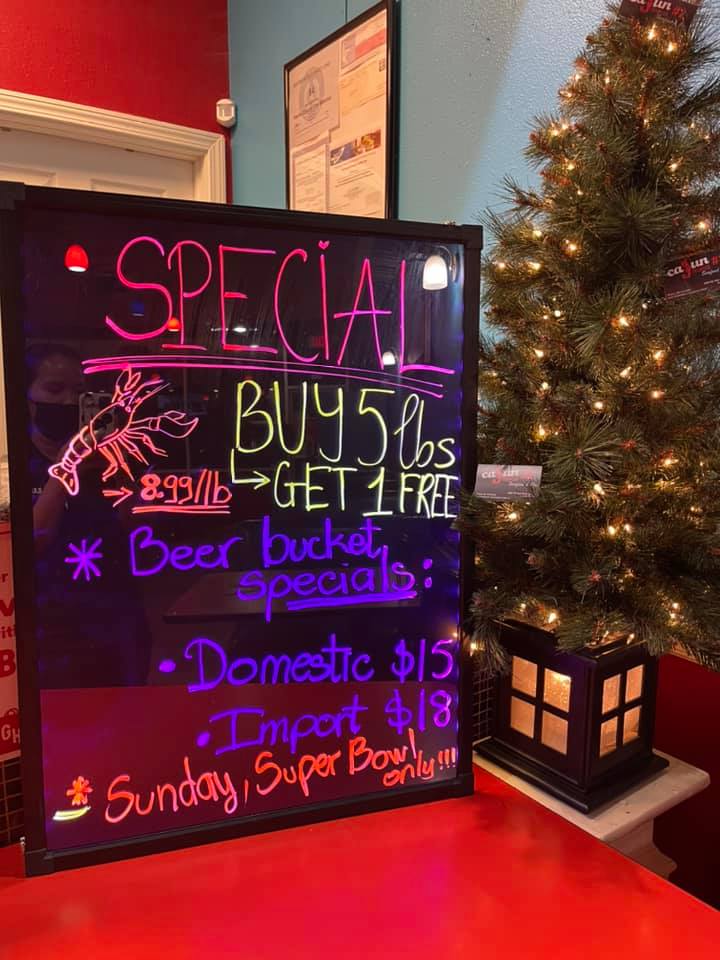 SPECiAL
BUY 5 lbs
→ 8.99/lb
GET 1 FREE
* Beer bucket
specials:
• Domestic $15
• Import $18
* Sunday, Super Bowl
only!!!
cajun
cajun
cajun